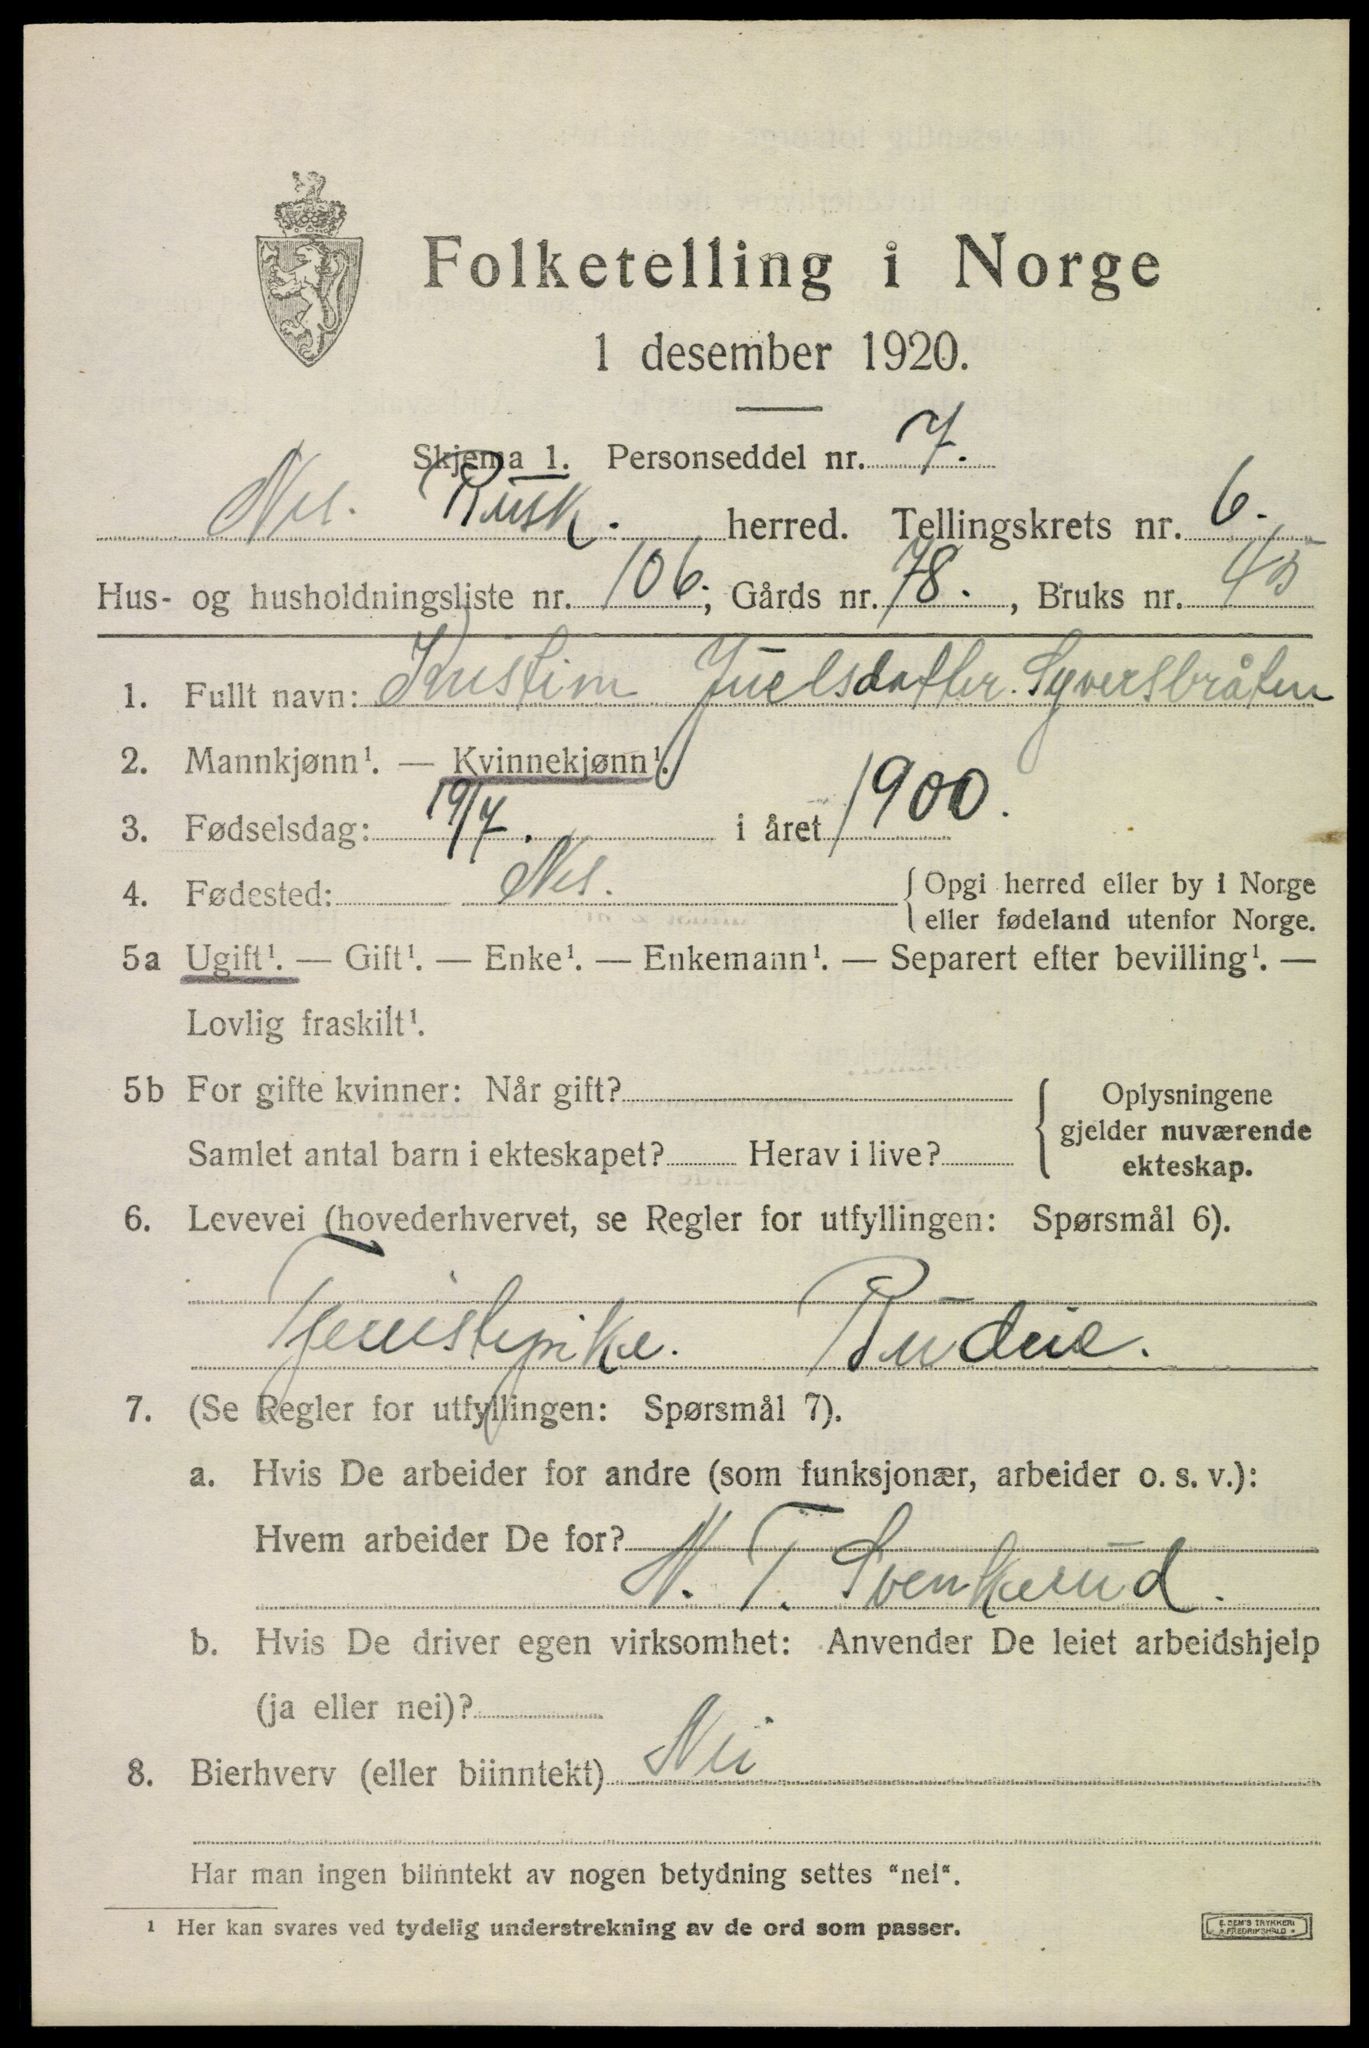 Folketelling i Norge
1 desember 1920.
Skjema 1. Personseddel nr. 7.
Nes. Rusk. herred. Tellingskrets nr. 6.
Hus- og husholdningsliste nr. 106; Gårds nr. 78., Bruks nr. 45
1. Fullt navn: Juelsdatter Syversbråten
2. Mannkjønn¹. — Kvinnekjønn¹.
3. Fødselsdag: 19/7. i året 1900.
4. Fødested: Nes. Opgi herred eller by i Norge
eller fødeland utenfor Norge.
5a Ugift¹. — Gift¹. — Enke¹. — Enkemann¹. — Separert efter bevilling¹. —
Lovlig fraskilt¹.
5b For gifte kvinner: Når gift?
Samlet antal barn i ekteskapet? Herav i live?
Oplysningene
gjelder nuværende
ekteskap.
6. Levevei (hovederhvervet, se Regler for utfyllingen: Spørsmål 6).
Tjenistepike.
7. (Se Regler for utfyllingen: Spørsmål 7).
a. Hvis De arbeider for andre (som funksjonær, arbeider o. s. v.):
Hvem arbeider De for?
N. T. Svenkerud.
b. Hvis De driver egen virksomhet: Anvender De leiet arbeidshjelp
(ja eller nei)?
8. Bierhverv (eller biinntekt) Nei
Har man ingen biinntekt av nogen betydning settes "nei".
¹ Her kan svares ved tydelig understrekning av de ord som passer.
E. SEM'S TRYKKERI
FREDRIKSHALD